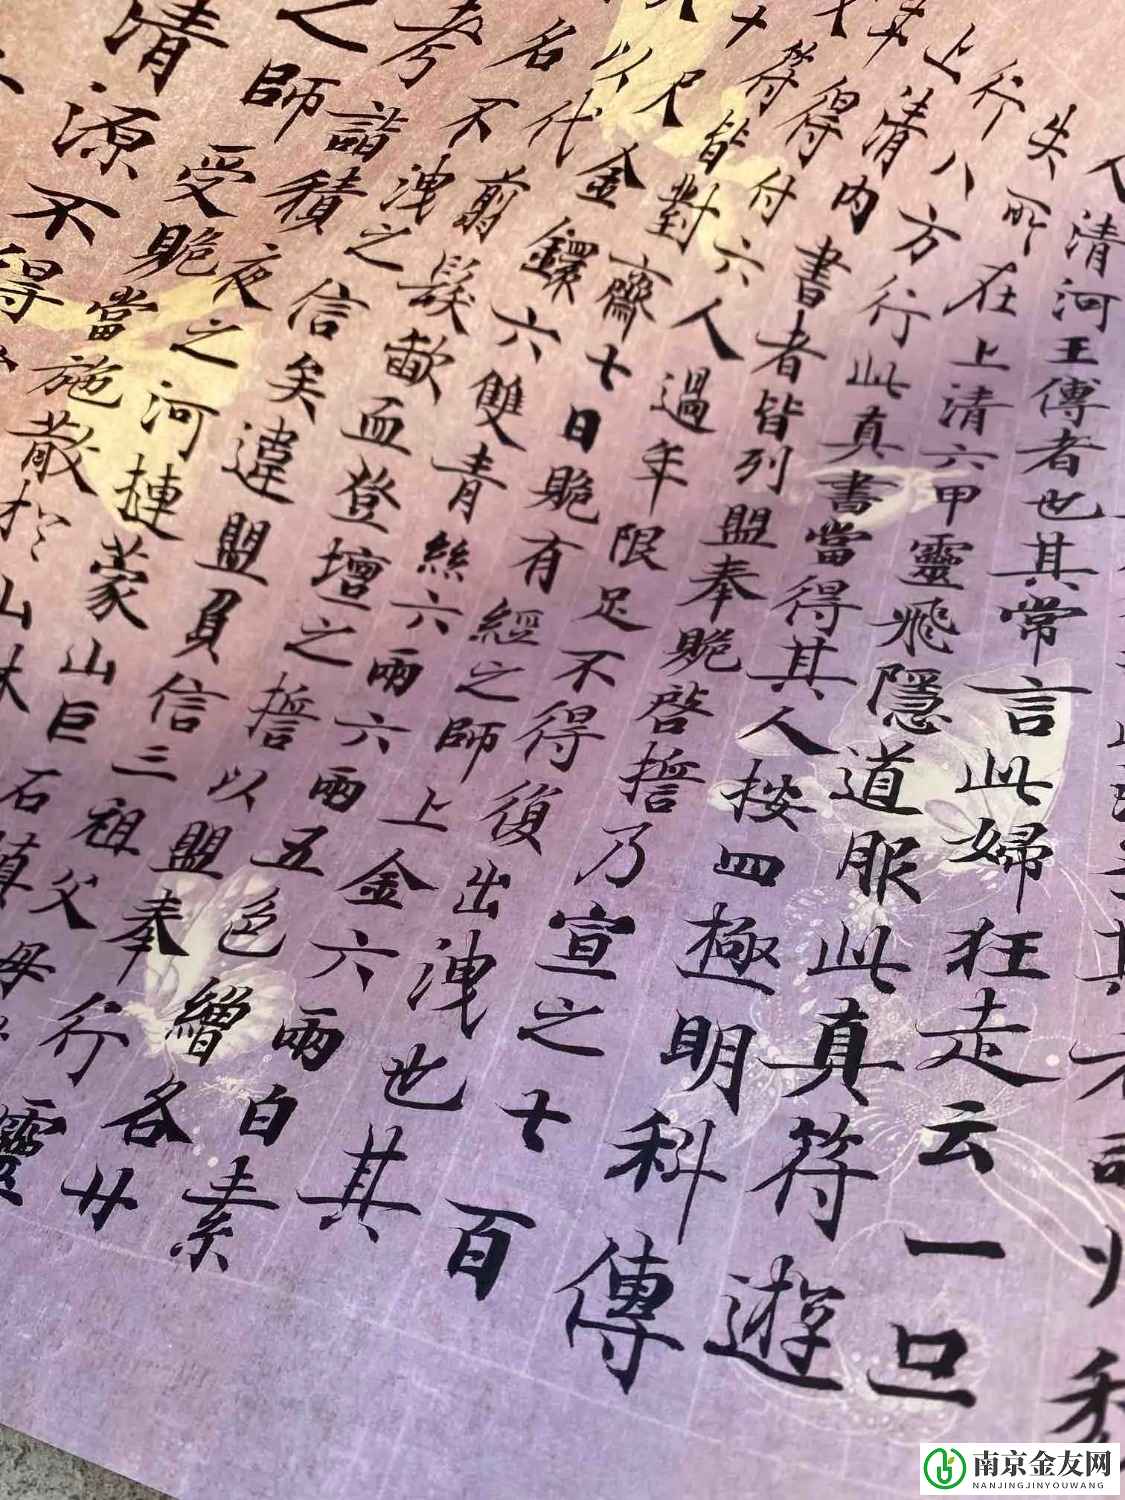 人清河王傳者也其常言此婦狂走云一旦
失所在上清六甲靈飛隱道服此真符遊
行八方行此真書當得其人按四極明科傳
上清內書者皆列盟奉貾啓誓乃宣之七百
得付六人過年限足不得復出洩也其
符皆對齋七日貾有經之師上金六兩白素
尺金鐶六雙青絲六兩六兩五色繒各廿
以代翦髮歃血登壇之誓以盟奉行
名不洩之信矣違盟負信三祖父母
考詣積夜之河摙蒙山巨石填
之師受貾當施散於山林
清源不得
南京金友网
NANJINGJINYOUWANG